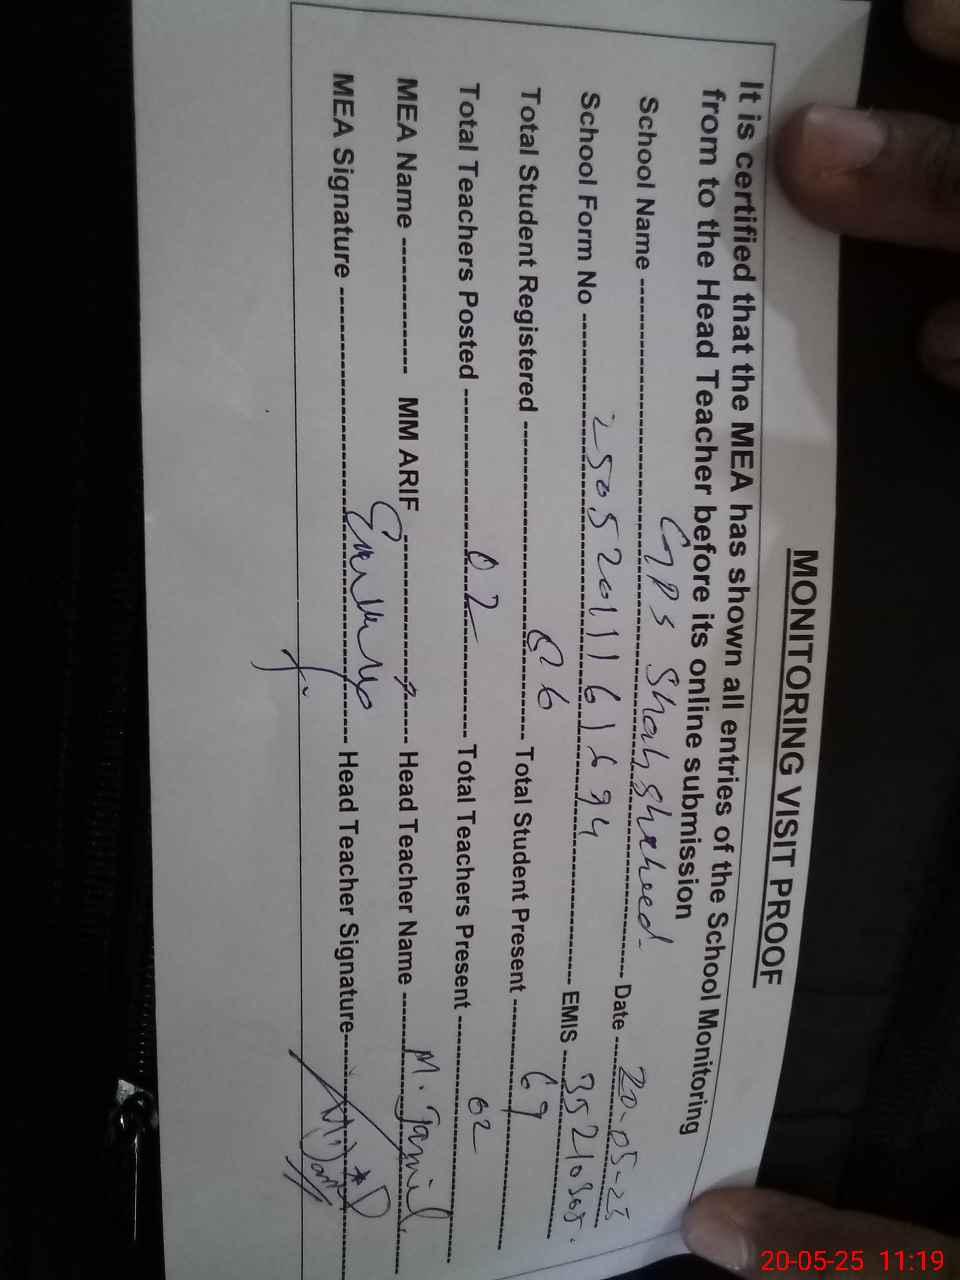 MONITORING VISIT PROOF
It is certified that the MEA has shown all entries of the School Monitoring
from to the Head Teacher before its online submission
School Name GPS Shah Shaheed Date 20-05-25
School Form No EMIS
Total Student Registered 86 Total Student Present 69
Total Teachers Posted 02 Total Teachers Present 02
MEA Name MM ARIF Head Teacher Name M. Jamil
MEA Signature Head Teacher Signature
20-05-25 11:19